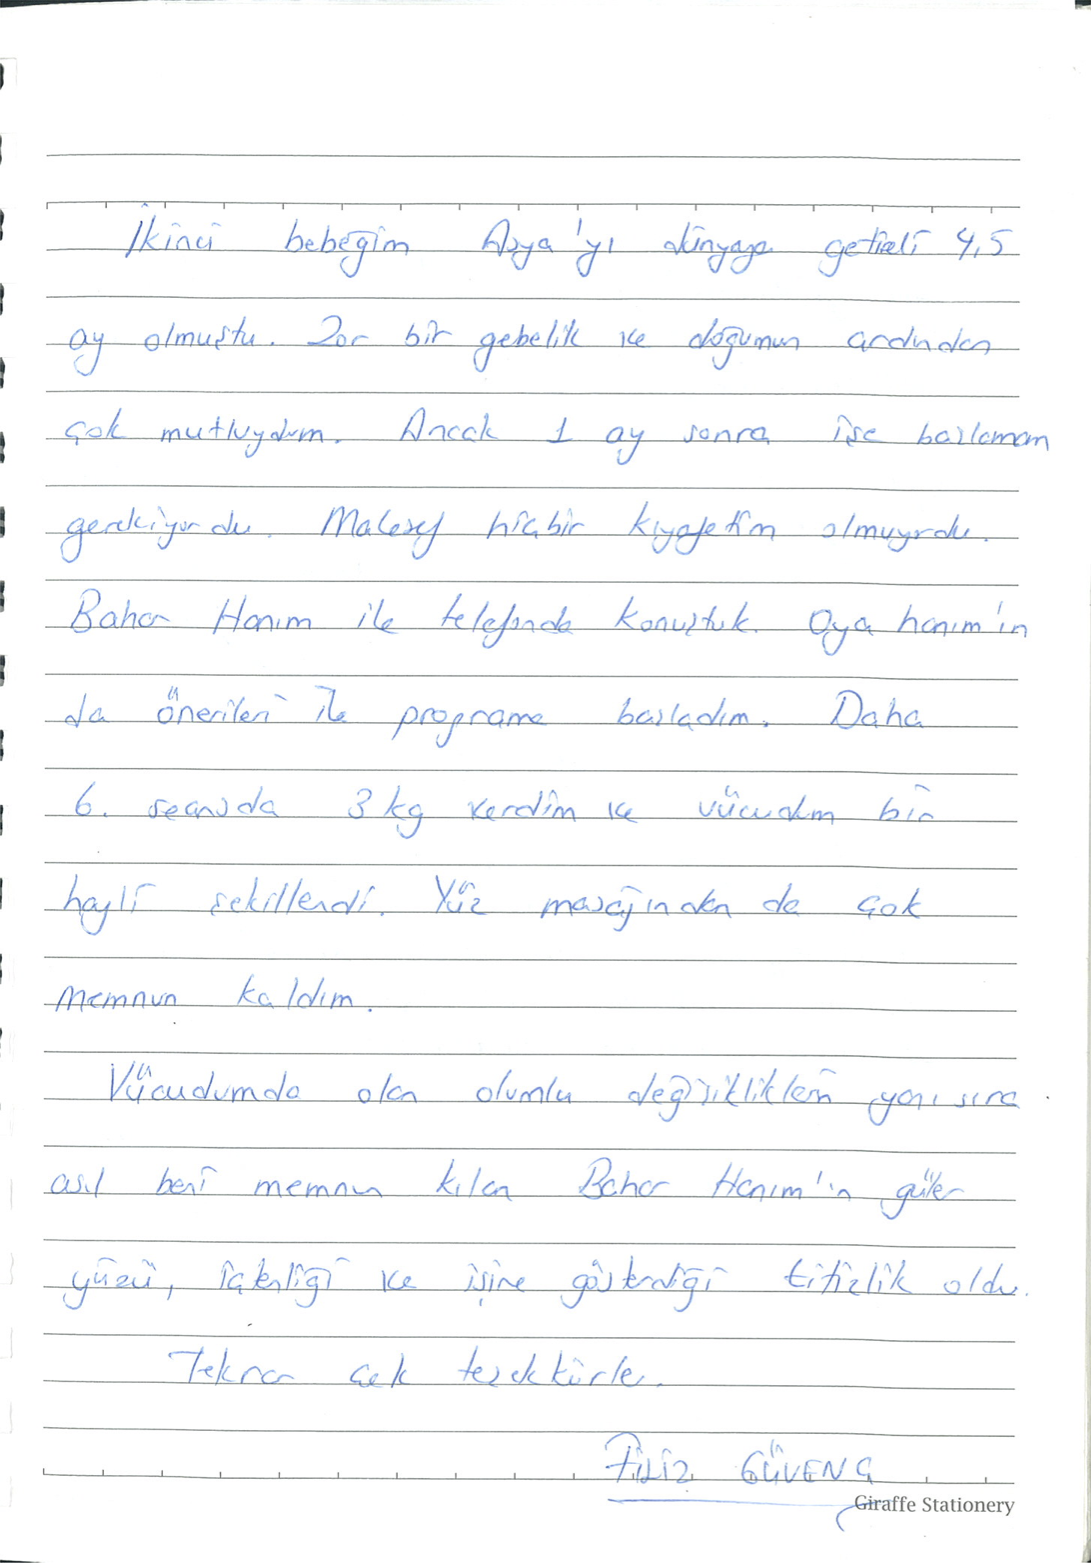 İkinci bebeğim Asya'yı dünyaya getireli 4,5
ay olmuştu. Zor bir gebelik ve doğumun ardından
çok mutluydum. Ancak 1 ay sonra işe başlamam
gerekiyordu. Malesef hiçbir kıyafetim olmuyrdu.
Bahar Hanım ile telefonda konuştuk. Oya hanım'ın
da önerileri ile programa başladım. Daha
6. seansda 3 kg verdim ve vücudum bir
hayli şekillendi. Yüz masajından da çok
memnun kaldım.
Vücudumda olan olumlu değişiklikleri yanı sıra
asıl beni memnun kılan Bahar Hanım'ın güler
yüzü, içtenliği ve işine gösterdiği titizlik oldu.
Tekrar çok teşekkürler.
FİLİZ GÜVENÇ
Giraffe Stationery